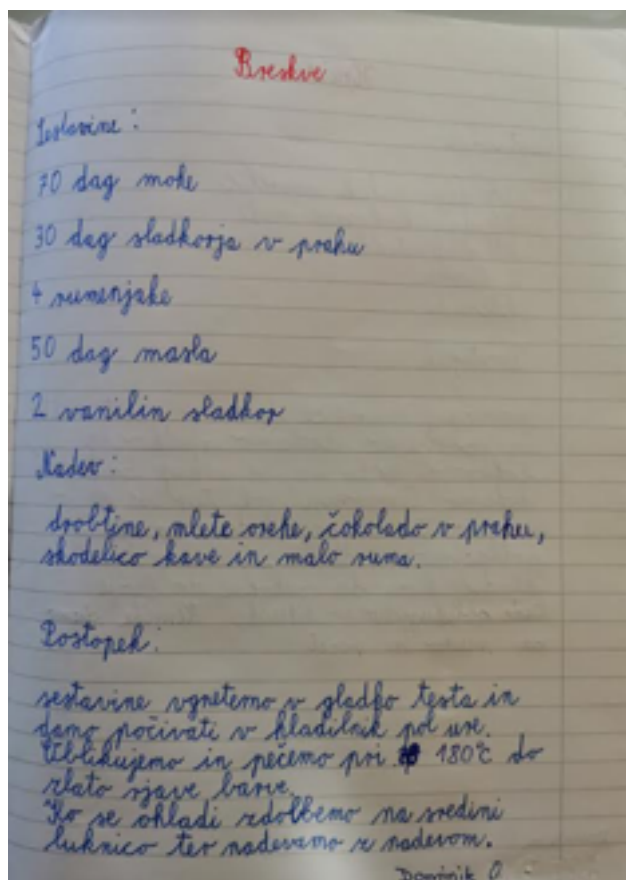 Breskve
Sestavine:
70 dag moke
30 dag sladkorja v prahu
4 rumenjake
50 dag masla
2 vanilin sladkor
Nadev:
drobtine, mlete orehe, čokolado v prahu,
skodelico kave in malo ruma.
Postopek:
sestavine vgnetemo v gladko testa in
damo počivati v hladilnik pol ure.
Oblikujemo in pečemo pri 180°C do
zlato rjave barve.
Ko se ohladi zdolbemo na sredini
luknico ter nadevamo z nadevom.
Dominik O